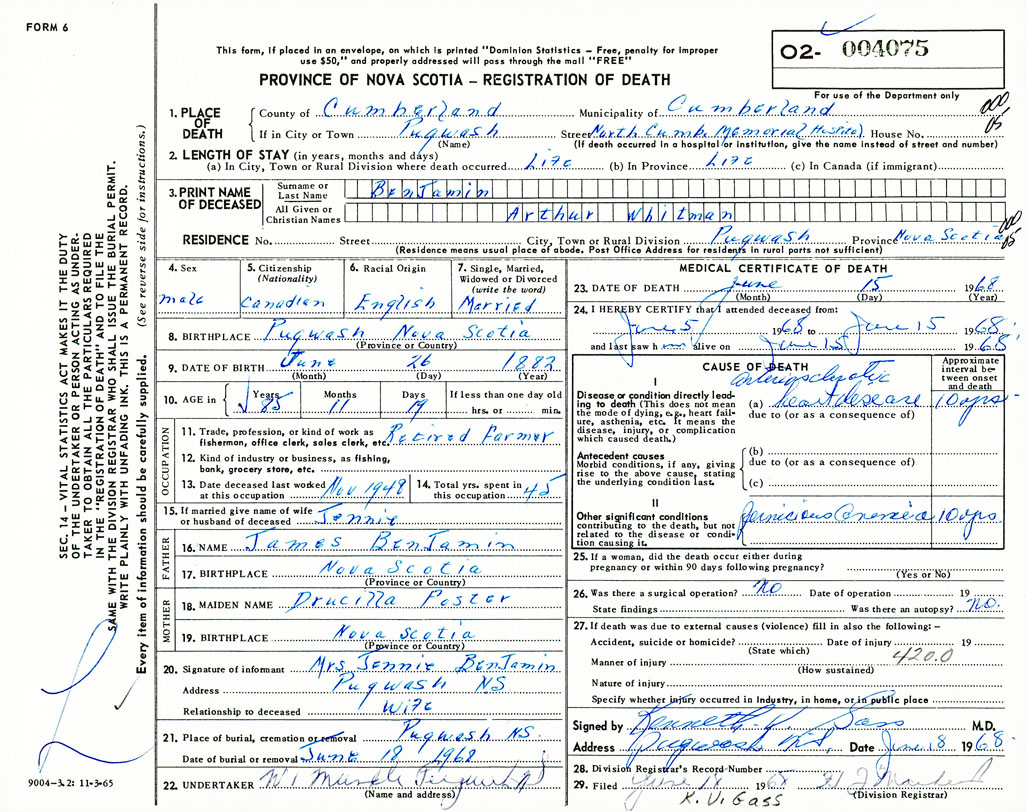 FORM 6
This form, if placed in an envelope, on which is printed "Dominion Statistics – Free, penalty for improper
use $50," and properly addressed will pass through the mail "FREE"
PROVINCE OF NOVA SCOTIA – REGISTRATION OF DEATH
O2- 004075
For use of the Department only
1. PLACE OF DEATH
County of Cumberland Municipality of Cumberland 000
If in City or Town Pugwash Street North Cumb. Memorial Hospital House No. 05
(Name) (If death occurred in a hospital or institution, give the name instead of street and number)
2. LENGTH OF STAY (in years, months and days)
(a) In City, Town or Rural Division where death occurred Life (b) In Province Life (c) In Canada (if immigrant)
3. PRINT NAME OF DECEASED
Surname or Last Name BenJamin
All Given or Christian Names Arthur Whitman
000
RESIDENCE No. Street City, Town or Rural Division Pugwash Province Nova Scotia 05
(Residence means usual place of abode. Post Office Address for residents in rural parts not sufficient)
4. Sex male
5. Citizenship (Nationality) Canadian
6. Racial Origin English
7. Single, Married, Widowed or Divorced (write the word) Married
8. BIRTHPLACE Pugwash Nova Scotia
(Province or Country)
9. DATE OF BIRTH June 26 1882
(Month) (Day) (Year)
10. AGE in Years 85 Months 11 Days 19 If less than one day old hrs. or min.
OCCUPATION
11. Trade, profession, or kind of work as
fisherman, office clerk, sales clerk, etc. Retired Farmer
12. Kind of industry or business, as fishing,
bank, grocery store, etc.
13. Date deceased last worked at this occupation Nov 1948
14. Total yrs. spent in this occupation 45
15. If married give name of wife
or husband of deceased Jennie
FATHER
16. NAME James BenJamin
17. BIRTHPLACE Nova Scotia
(Province or Country)
MOTHER
18. MAIDEN NAME Drucilla Foster
19. BIRTHPLACE Nova Scotia
(Province or Country)
20. Signature of informant Mrs Jennie BenJamin
Address Pugwash NS
Relationship to deceased Wife
21. Place of burial, cremation or removal Pugwash NS.
Date of burial or removal June 18 1968
22. UNDERTAKER
(Name and address)
MEDICAL CERTIFICATE OF DEATH
23. DATE OF DEATH June 15 1968
(Month) (Day) (Year)
24. I HEREBY CERTIFY that I attended deceased from:
June 5 1968 to June 15 1968
and last saw him alive on June 15 1968
CAUSE OF DEATH
Approximate interval between onset and death
I
Disease or condition directly leading to death (This does not mean
the mode of dying, e.g., heart failure, asthenia, etc. It means the
disease, injury, or complication
which caused death.)
arteriosclerotic
(a) heart disease 10 yrs
due to (or as a consequence of)
Antecedent causes
Morbid conditions, if any, giving
rise to the above cause, stating
the underlying condition last.
(b)
due to (or as a consequence of)
(c)
II
Other significant conditions
contributing to the death, but not
related to the disease or condition causing it.
Pernicious Anemia 10 yrs
25. If a woman, did the death occur either during
pregnancy or within 90 days following pregnancy?
(Yes or No)
26. Was there a surgical operation? No Date of operation 19
State findings Was there an autopsy? No.
27. If death was due to external causes (violence) fill in also the following:–
Accident, suicide or homicide? Date of injury 19
(State which)
Manner of injury 420.0
(How sustained)
Nature of injury
Specify whether injury occurred in Industry, in home, or in public place
Signed by Kenneth V. Gass M.D.
Address Pugwash N.S. Date June 18 1968
28. Division Registrar's Record Number
29. Filed June 18 1968
(Division Registrar)
K. V. Gass
SEC. 14 – VITAL STATISTICS ACT MAKES IT THE DUTY
OF THE UNDERTAKER OR PERSON ACTING AS UNDERTAKER TO OBTAIN ALL THE PARTICULARS REQUIRED
IN THE "REGISTRATION OF DEATH" AND TO FILE THE
SAME WITH THE DIVISION REGISTRAR WHO SHALL ISSUE THE BURIAL PERMIT.
WRITE PLAINLY WITH UNFADING INK. THIS IS A PERMANENT RECORD.
Every item of information should be carefully supplied. (See reverse side for instructions.)
9004-3.2: 11-3-65